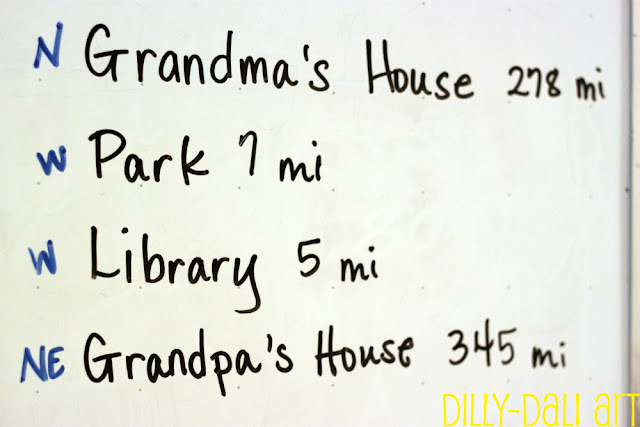 N Grandma's House 278 mi
W Park 7 mi
W Library 5 mi
NE Grandpa's House 345 mi
DILLY-DALI ART